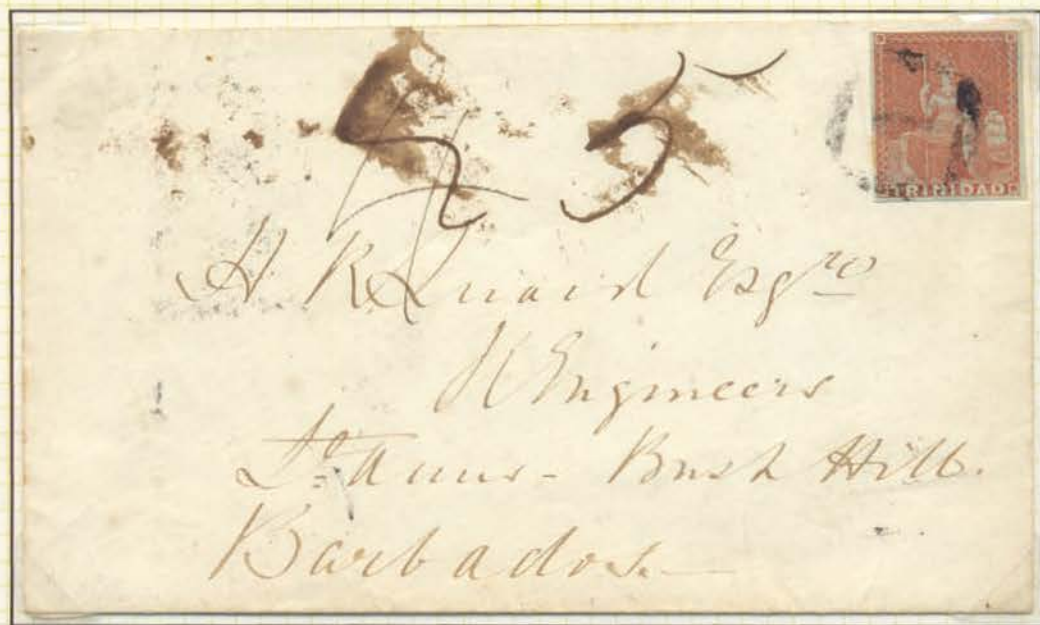 TRINIDAD
H R Esqre
R Engineers
St Anns - Bush Hill.
Barbados. —